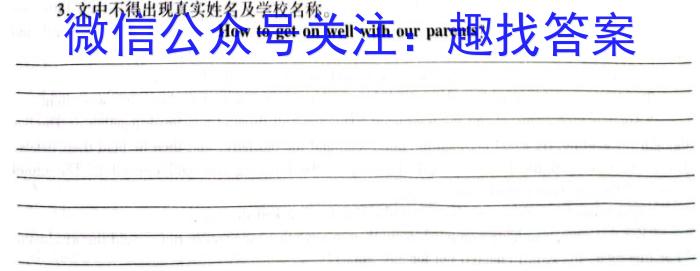 3. 文中不得出现真实姓名及学校名称。
微信公众号关注：趣找答案
How to get on well with our parents